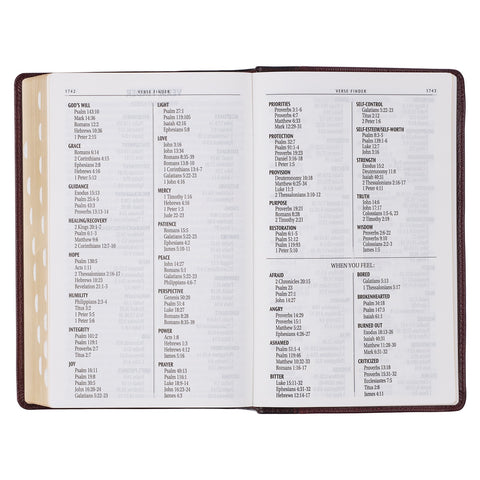 1742
VERSE FINDER
GOD'S WILL
Psalm 143:10
Mark 14:36
Romans 12:2
Hebrews 10:36
1 Peter 2:15
GRACE
Romans 6:14
2 Corinthians 4:15
Ephesians 2:8
Hebrews 4:16
1 Peter 5:12
GUIDANCE
Exodus 15:13
Psalm 25:4-5
Psalm 43:3
Proverbs 13:13-14
HEALING/RECOVERY
2 Kings 20:1-7
Psalm 6:1-5
Matthew 9:6
2 Corinthians 12:7-10
HOPE
Psalm 130:5
Acts 1:11
2 Thessalonians 2:16-17
Hebrews 10:23
Revelation 21:1-3
HUMILITY
Philippians 2:3-4
Titus 3:2
1 Peter 5:5
1 Peter 5:6
INTEGRITY
Psalm 101:2
Psalm 119:1
Proverbs 2:7
Titus 2:7
JOY
Psalm 16:11
Psalm 19:8
Psalm 30:5
John 16:20-24
Galatians 5:22-23
LIGHT
Psalm 27:1
Psalm 119:105
Isaiah 42:16
Ephesians 5:8
LOVE
John 3:16
John 13:34
Romans 8:35-39
Romans 13:8-10
1 Corinthians 13:1-13
Galatians 5:22-23
1 John 4:16
MERCY
2 Timothy 1:16
Hebrews 4:16
1 Peter 1:3
Jude 22-23
PATIENCE
Romans 15:5
Galatians 5:22-23
Ephesians 4:2
James 5:10-11
PEACE
John 14:27
Romans 5:1
Galatians 5:22-23
Philippians 4:6-7
PERSPECTIVE
Genesis 50:20
Psalm 51:4
Luke 18:27
Romans 8:28
POWER
Acts 1:8
Hebrews 1:3
Hebrews 4:12
James 5:16
PRAYER
Psalm 40:13
Psalm 116:1
Luke 18:9-14
John 16:23-24
James 4:3
VERSE FINDER
1743
PRIORITIES
Proverbs 3:1-6
Proverbs 4:7
Matthew 6:33
Mark 12:29-31
PROTECTION
Psalm 32:7
Psalm 91:1-4
Proverbs 19:23
Daniel 3:16-18
1 Peter 1:5
PROVISION
Deuteronomy 10:18
Matthew 6:25-34
Luke 11:3
2 Thessalonians 3:10-12
PURPOSE
Proverbs 19:21
Romans 8:28
2 Timothy 2:21
RESTORATION
Psalm 6:1-5
Psalm 51:12
Psalm 119:93
1 Peter 5:10
SELF-CONTROL
Galatians 5:22-23
Titus 2:12
2 Peter 1:6
SELF-ESTEEM/SELF-WORTH
Psalm 8:3-5
Psalm 139:1-4
Luke 12:7
John 3:16
STRENGTH
Exodus 15:2
Deuteronomy 11:8
Isaiah 40:31
2 Thessalonians 2:16-17
1 Peter 4:11
TRUTH
John 14:6
John 17:17
Colossians 1:5-6, 23
2 Timothy 2:19
WISDOM
Proverbs 2:6-22
Proverbs 9:10
Colossians 2:2-3
James 1:5
WHEN YOU FEEL:
AFRAID
2 Chronicles 20:15
Psalm 23
Psalm 27:1
John 14:27
ANGRY
Proverbs 14:29
Proverbs 15:1
Matthew 5:22
Ephesians 4:26-27
ASHAMED
Psalm 51:1-4
Psalm 119:46
Matthew 10:32-33
Romans 1:16-17
BITTER
Luke 15:11-32
Ephesians 4:31-32
Hebrews 12:14-17
BORED
Galatians 5:13
1 Thessalonians 5:17
BROKENHEARTED
Psalm 34:18
Psalm 147:3
Isaiah 61:1
BURNED OUT
Exodus 18:13-26
Isaiah 40:31
Mark 6:31-32
CRITICIZED
Proverbs 13:18
Proverbs 15:31-32
Ecclesiastes 7:5
Titus 2:8
James 4:11